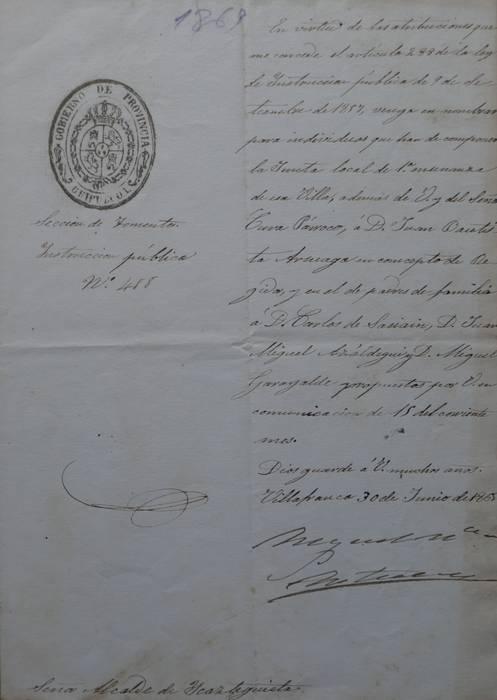 1868
GOBIERNO DE PROVINCIA
GUIPUZCOA
Seccion de Fomento.
Instruccion pública
Nº. 488
En virtud de las atribuciones que
me concede el artículo 288 de la ley
de Instruccion pública de 9 de Se-
tiembre de 1857, vengo en nombrar
para individuos que han de componer
la Junta local de 1ª. enseñanza
de esa Villa, ademas de V. y del Señor
Cura Párroco, á D. Juan Bautis-
ta Arsuaga en concepto de Re-
gidor, y en el de padres de familia
á D. Carlos de Sasiain, D. Juan
Miguel y D. Miguel
Garagalde propuestos por V. en
comunicacion de 15 del corriente
mes.
Dios guarde á V. muchos años.
Villafranca 30 de Junio de 186
Señor Alcalde de Icazteguieta.